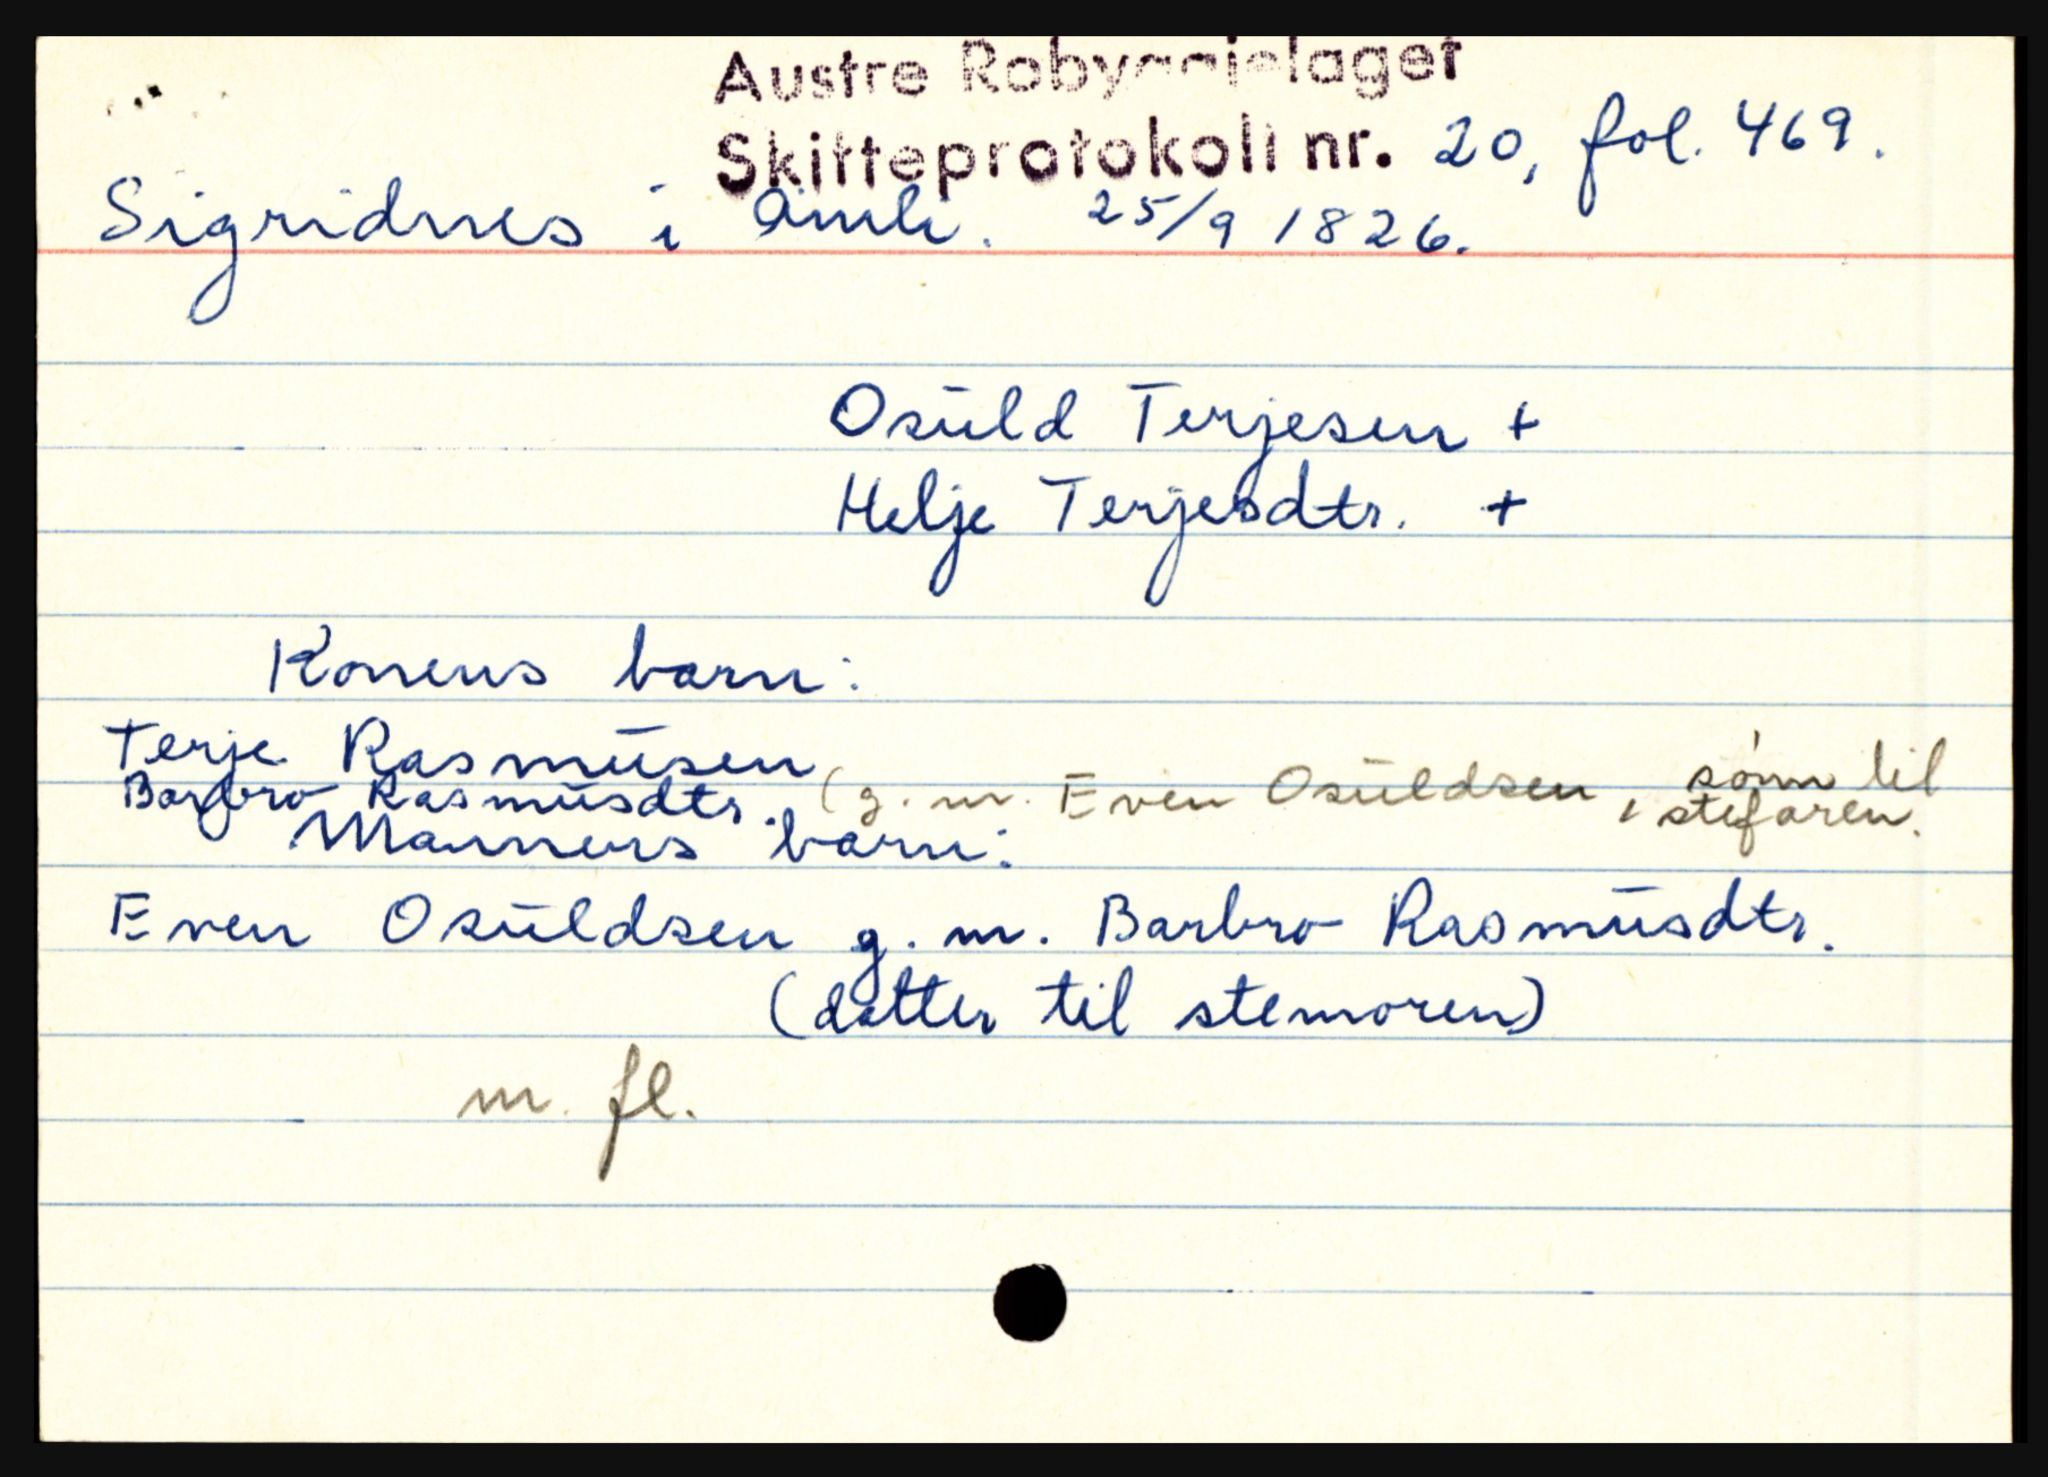 Austre Robyggjelaget
Skifteprotokoll nr. 20, fol. 469.
Sigridnes i Åmli. 25/9 1826.
Osuld Terjesen +
Helje Terjesdtr. +
Konens barn:
Terje Rasmusen
Barbro Rasmusdtr. (g. m. Even Osuldsen, sønn til stefaren.
Mannens barn:
Even Osuldsen g. m. Barbro Rasmusdtr.
(datter til stemoren)
m. fl.